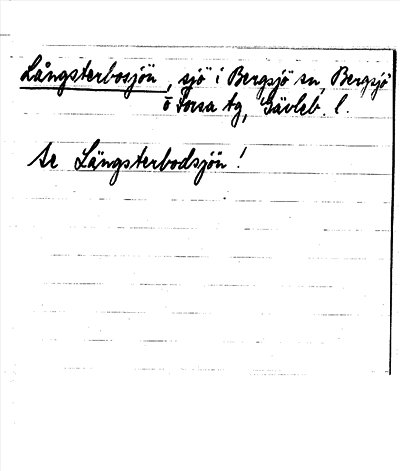 Långsterbosjön, sjö i Bergsjö sn, Bergsjö
o Forsa tg, Gävleb. l.
Se Långsterbodsjön!